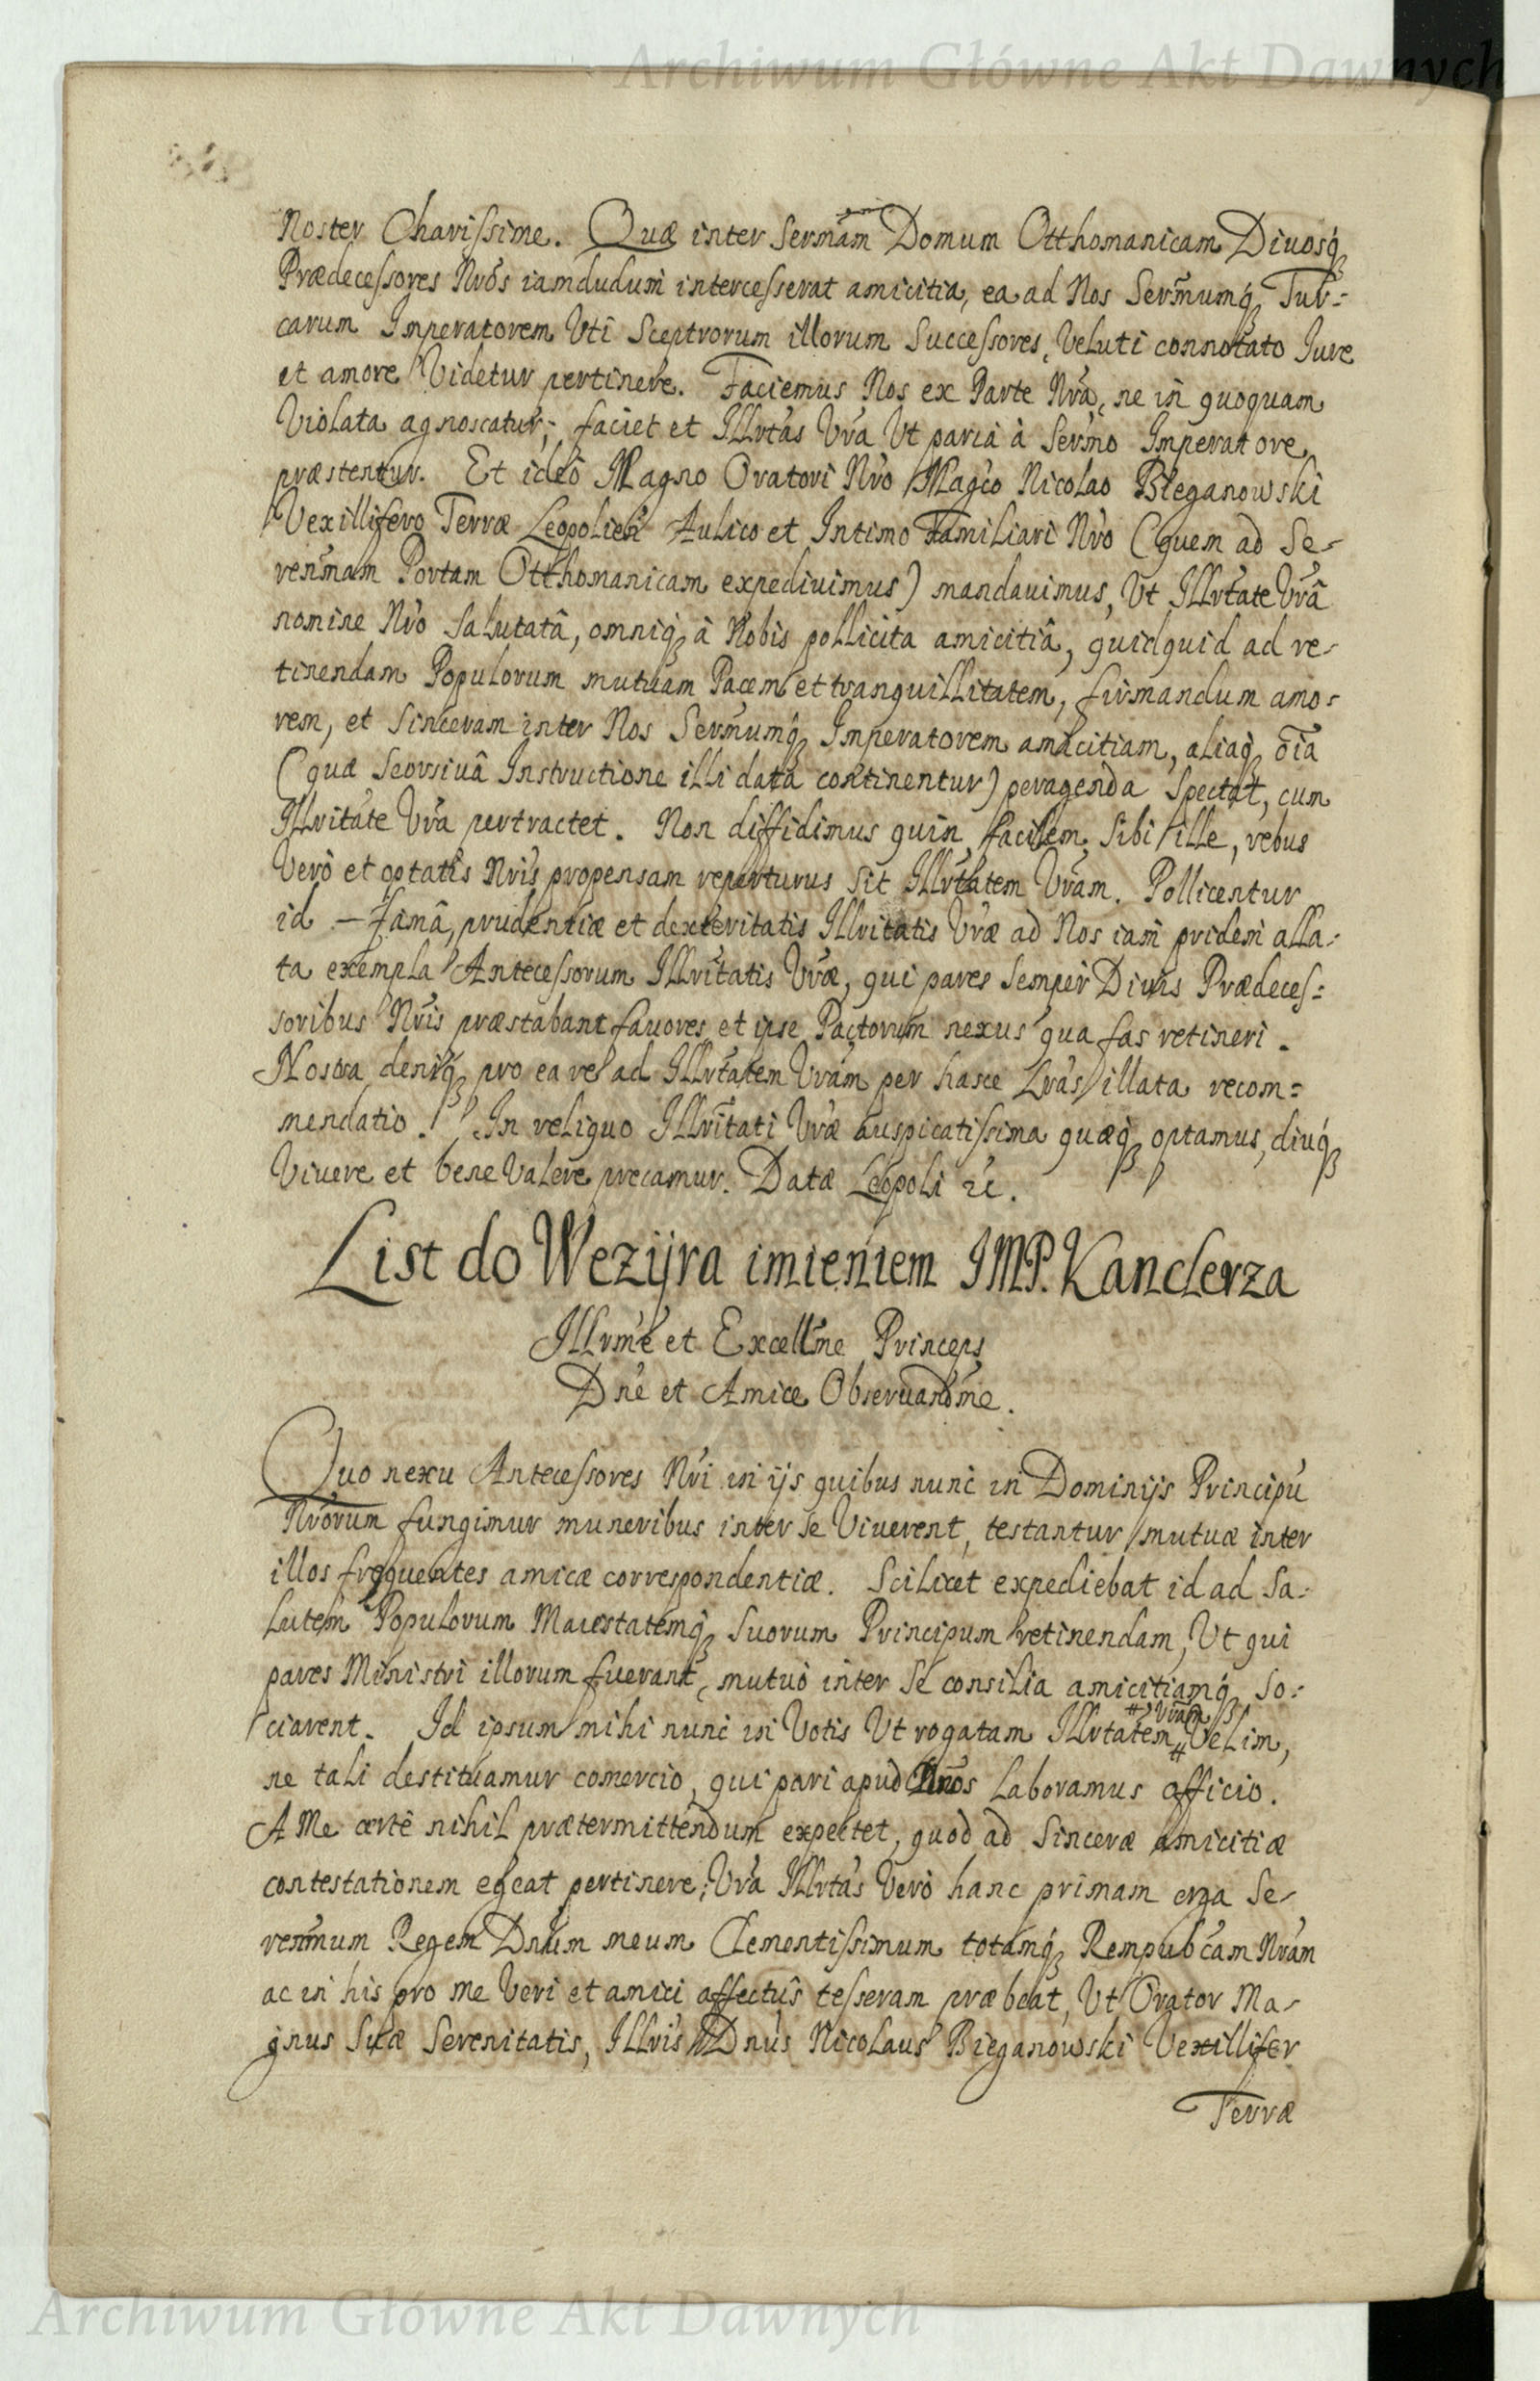 Archiwum Główne Akt Dawnych
Noster Charissime. Quæ inter Sermam Domum Otthomanicam Diuosq́
Prædecessores Nros iamdudum intercesserat amicitia, ea ad Nos Sermumq́ Tur-
carum Imperatorem Uti Sceptrorum illorum Successores, Veluti connotato Jure
et amore Videtur pertinere. Faciemus Nos ex Parte Nra, ne in quoquam
Violata agnoscatur; faciet et Illrtas Vra Ut paria à Sermo Imperatore
præstentur. Et ideo Magno Oratori Nro Magco Nicolao Bieganowski
Vexillifero Terræ Leopolien Aulico et Intimo Familiari Nro (quem ad Se-
renmam Portam Otthomanicam expediuimus) mandauimus, Ut Illrtate Vrâ
nomine Nro Salutatâ, omniq́ à Nobis pollicita amicitiâ, quidquid ad re-
tinendam Populorum mutuam Pacem et tranquillitatem, firmandum amo-
rem, et Sinceram inter Nos Sermumq́ Imperatorem amicitiam, aliaq́ oĩa
(quæ Seorsiuâ Instructione illi data continentur) peragenda Spectat, cum
Illritate Vra pertractet. Non diffidimus quin facilem Sibi ille, rebus
Verò et optatis Nris propensam reperturus Sit Illrtatem Vram. Pollicentur
id - Famâ, prudentiæ et dexteritatis Illritatis Vræ ad Nos iam pridem alla-
ta exempla Antecessorum Illritatis Vræ, qui pares Semper Diuis Prædeces-
soribus Nris præstabant fauores et ipse Pactorum nexus qua fas retineri.
Nostra deniq́ pro ea re ad Illrtatem Vram per hasce Lras illata recom-
mendatio. In reliquo Illritati Vræ auspicatissima quæq́ optamus, diuq́
Viuere et bene Valere precamur. Datæ Leopoli etc.
List do Wezijra imieniem JMP. Kanclerza
Illrme et Excellme Princeps
Dne et Amice Obseruandme.
Quo nexu Antecessores Nri in ijs quibus nunc in Dominijs Principũ
Nrorum fungimur muneribus inter se Viuerent, testantur mutuæ inter
illos frequentes amicæ correspondentiæ. Scilicet expediebat id ad Sa-
lutem Populorum Maiestatemq́ Suorum Principum retinendam, Ut qui
pares Ministri illorum fuerant, mutuò inter Se consilia amicitiamq́ So-
ciarent. Id ipsum mihi nunc in Votis Ut rogatam Illrtatem # Vram # Velim,
ne tali destituamur comercio, qui pari apud Dnos Laboramus officio.
A Me certè nihil prætermittendum expectet, quod ad Sinceræ amicitiæ
contestationem egeat pertinere; Vra Illrtas Verò hanc primam erga Se-
renmum Regem Dnum meum Clementissimum totamq́ Rempubcam Nram
ac in his pro me Veri et amici affectûs tesseram præbeat, Ut Orator Ma-
gnus Suæ Serenitatis, Illris Dnus Nicolaus Bieganowski Vexillifer
Terræ
Archiwum Główne Akt Dawnych